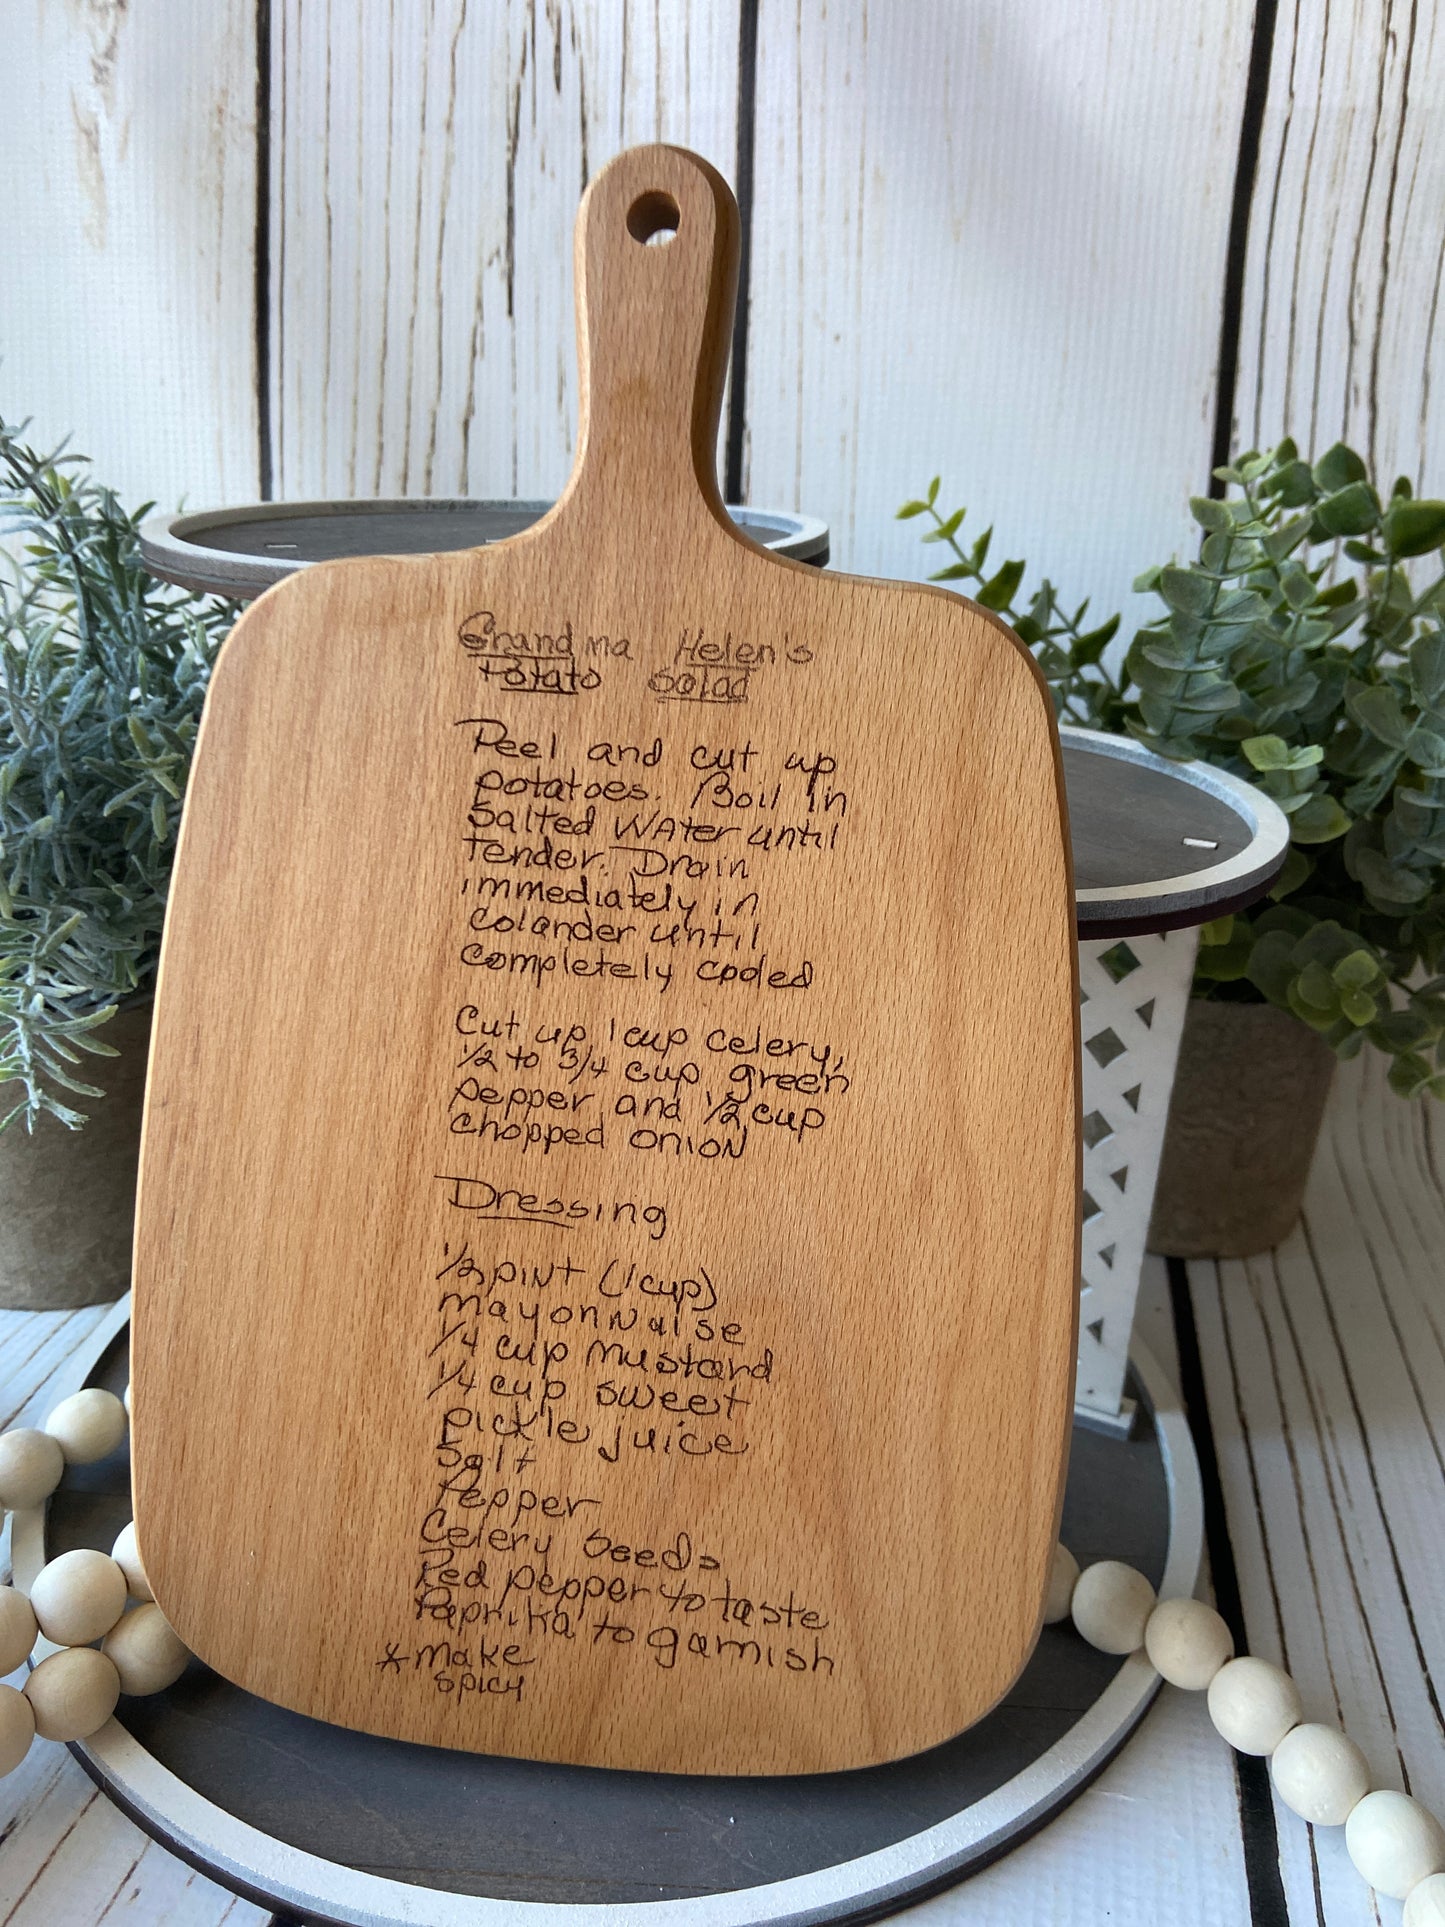 Grandma Helen's
Potato Salad
Peel and cut up
potatoes. Boil in
Salted WAter until
Tender. Drain
immediately in
Colander until
Completely cooled
Cut up 1 cup Celery,
1/2 to 3/4 cup green
pepper and 1/2 cup
Chopped onioN
Dressing
1/2 piNt (1 cup)
MayonNaise
1/4 cup mustard
1/4 cup sweet
pickle juice
Salt
Pepper
Celery Seeds
Red pepper to taste
Paprika to garnish
*Make
spicy